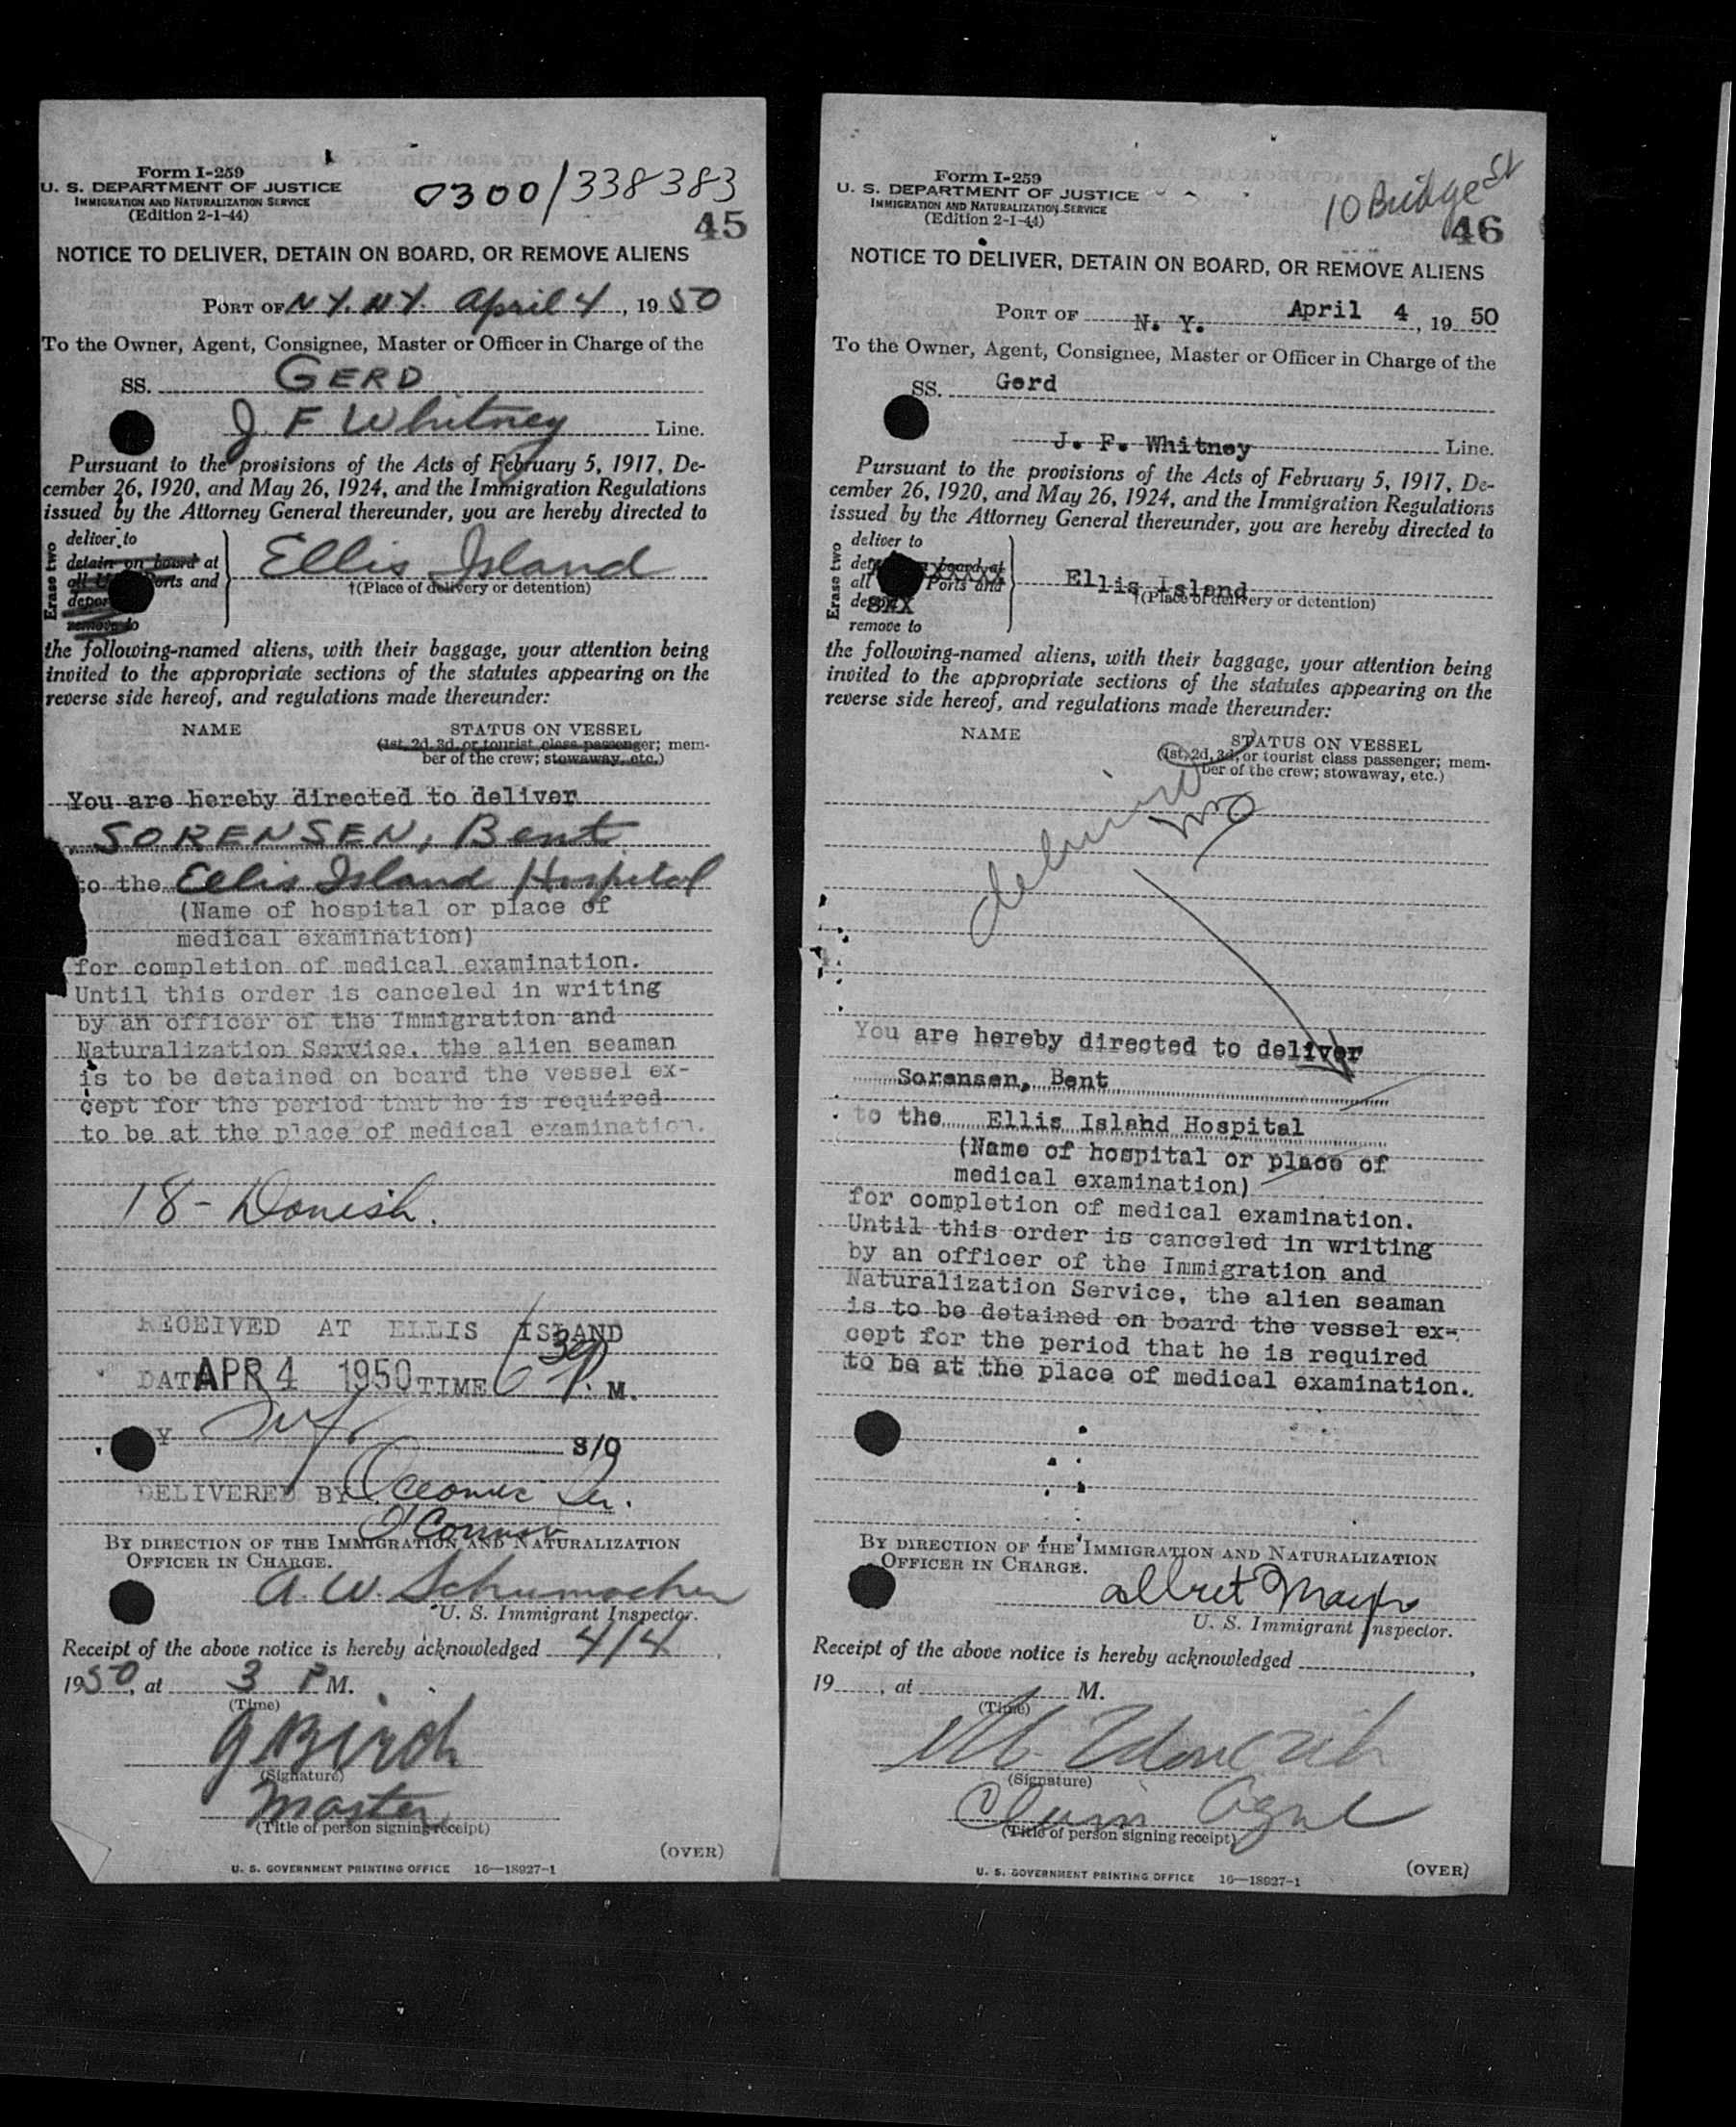 Form I-259
U. S. DEPARTMENT OF JUSTICE
IMMIGRATION AND NATURALIZATION SERVICE
(Edition 2-1-44)
0300/338383
45
NOTICE TO DELIVER, DETAIN ON BOARD, OR REMOVE ALIENS
PORT OF N.Y. N.Y. April 4, 1950
To the Owner, Agent, Consignee, Master or Officer in Charge of the
SS. GERD
J. F Whitney Line.
Pursuant to the provisions of the Acts of February 5, 1917, De-
cember 26, 1920, and May 26, 1924, and the Immigration Regulations
issued by the Attorney General thereunder, you are hereby directed to
Erase two
deliver to
detain on board at
all Ports and
remove to
Ellis Island
†(Place of delivery or detention)
the following-named aliens, with their baggage, your attention being
invited to the appropriate sections of the statutes appearing on the
reverse side hereof, and regulations made thereunder:
NAME STATUS ON VESSEL
(1st, 2d, 3d, or tourist class passenger; mem-
ber of the crew; stowaway, etc.)
You are hereby directed to deliver
SORENSEN, Bent
to the Ellis Island Hospital
(Name of hospital or place of
medical examination)
for completion of medical examination.
Until this order is canceled in writing
by an officer of the Immigration and
Naturalization Service, the alien seaman
is to be detained on board the vessel ex-
cept for the period that he is required
to be at the place of medical examination.
18- Danish.
RECEIVED AT ELLIS ISLAND
DATE APR 4 1950 TIME 6 30 P. M.
S/O
DELIVERED BY Oceanic
O'Connor
BY DIRECTION OF THE IMMIGRATION AND NATURALIZATION
OFFICER IN CHARGE.
A. W. Schumacher
U. S. Immigrant Inspector.
Receipt of the above notice is hereby acknowledged 4/4,
1950, at 3 P M.
(Time)
G Birch
(Signature)
Master
(Title of person signing receipt)
(OVER)
U. S. GOVERNMENT PRINTING OFFICE 16—18927-1
Form I-259
U. S. DEPARTMENT OF JUSTICE
IMMIGRATION AND NATURALIZATION SERVICE
(Edition 2-1-44)
10 Bridge St
46
NOTICE TO DELIVER, DETAIN ON BOARD, OR REMOVE ALIENS
PORT OF N. Y. April 4, 19 50
To the Owner, Agent, Consignee, Master or Officer in Charge of the
SS. Gerd
J. F. Whitney Line.
Pursuant to the provisions of the Acts of February 5, 1917, De-
cember 26, 1920, and May 26, 1924, and the Immigration Regulations
issued by the Attorney General thereunder, you are hereby directed to
Erase two
deliver to
board at
all Ports and
remove to
Ellis Island
†(Place of delivery or detention)
the following-named aliens, with their baggage, your attention being
invited to the appropriate sections of the statutes appearing on the
reverse side hereof, and regulations made thereunder:
NAME STATUS ON VESSEL
(1st, 2d, 3d, or tourist class passenger; mem-
ber of the crew; stowaway, etc.)
You are hereby directed to deliver
Sorensen, Bent
to the Ellis Island Hospital
(Name of hospital or place of
medical examination)
for completion of medical examination.
Until this order is canceled in writing
by an officer of the Immigration and
Naturalization Service, the alien seaman
is to be detained on board the vessel ex-
cept for the period that he is required
to be at the place of medical examination.
BY DIRECTION OF THE IMMIGRATION AND NATURALIZATION
OFFICER IN CHARGE.
U. S. Immigrant Inspector.
Receipt of the above notice is hereby acknowledged ,
19 , at M.
(Time)
(Signature)
(Title of person signing receipt)
(OVER)
U. S. GOVERNMENT PRINTING OFFICE 16—18927-1